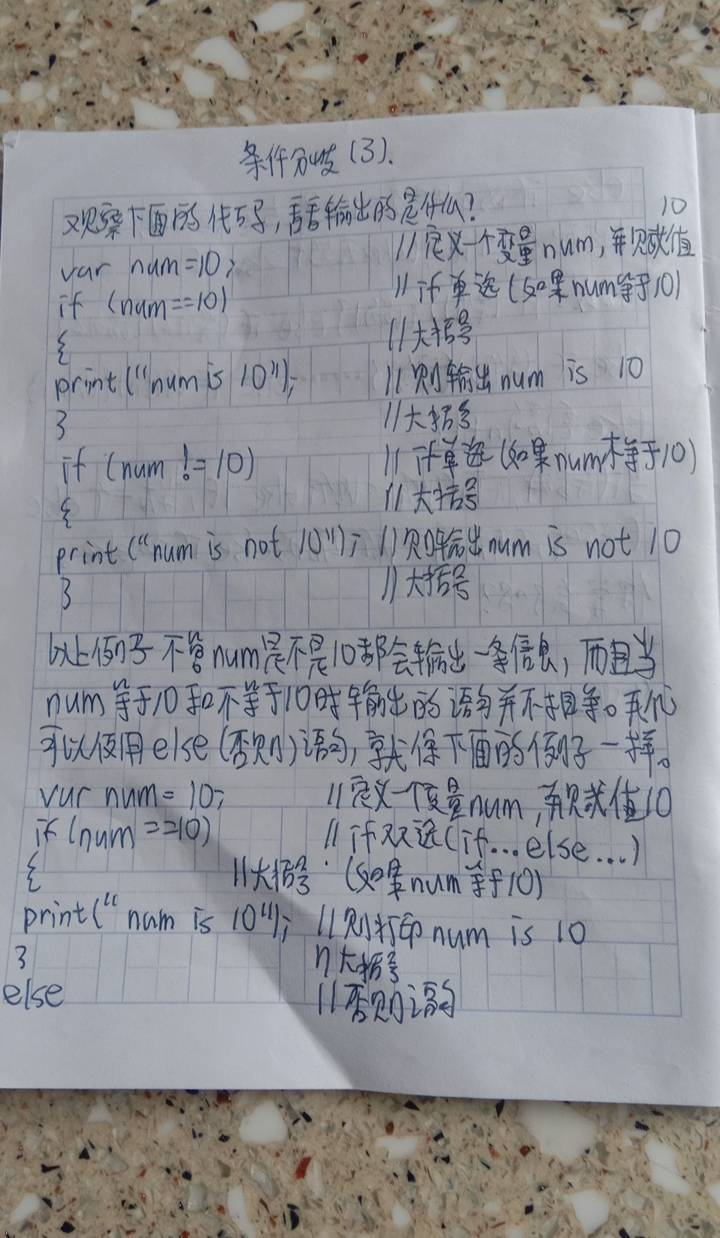 条件分歧(3).
观察下面的代码,请输出的是什么?
var num=10; //定义一个变量num,并赋值10
if (num==10) //if单选(如果num等于10)
{ //大括号
print("num is 10"); //则输出num is 10
} //大括号
if (num != 10) //if单选(如果num不等于10)
{ //大括号
print("num is not 10"); //则输出num is not 10
} //大括号
以上例子不管num是不是10都会输出一条信息,而且当
num等于10和不等于10时输出的语句并不相等。我们
可以使用else(否则)语句,就像下面的例子一样。
var num= 10; //定义一个变量num,并赋值10
if(num ==10) //if双选(if...else...)
{ //大括号 (如果num等于10)
print("num is 10"); //则打印num is 10
} //大括号
else //否则语句